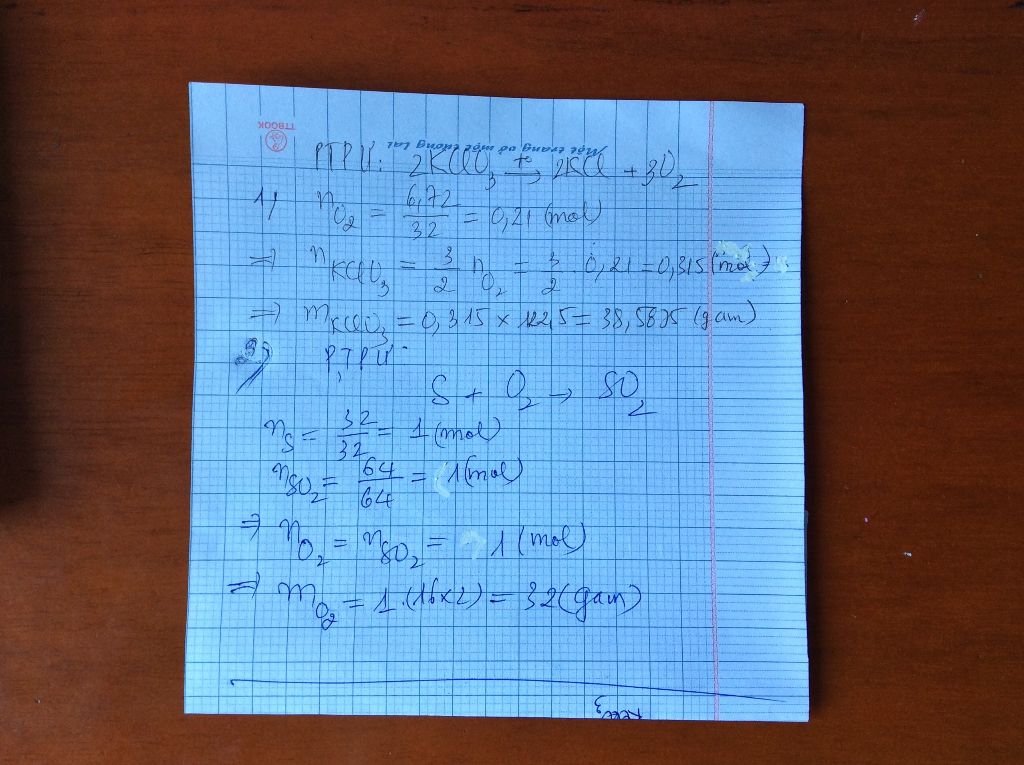 TTBOOK
Một trang vở một tương lai
PTPU: 2KClO3 t°→ 2KCl + 3O2
1) nO2 = 6,72/32 = 0,21 (mol)
=> nKClO3 = 3/2 nO2 = 3/2 . 0,21 = 0,315 (mol)
=> mKClO3 = 0,315 × 122,5 = 38,5875 (gam)
2) PTPU:
S + O2 → SO2
nS = 32/32 = 1 (mol)
nSO2 = 64/64 = 1 (mol)
=> nO2 = nSO2 = 1 (mol)
=> mO2 = 1.(16×2) = 32 (gam)